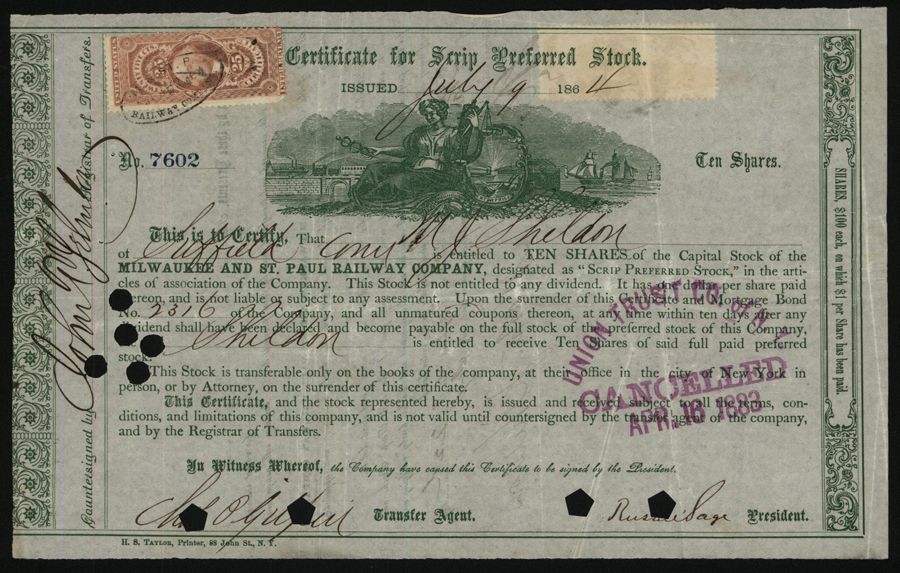 Certificate for Scrip Preferred Stock.
ISSUED July 9 1864
No. 7602
Ten Shares.
This is to Certify, That M J Sheldon
of Suffield Conn is entitled to TEN SHARES of the Capital Stock of the
MILWAUKEE AND ST. PAUL RAILWAY COMPANY, designated as "SCRIP PREFERRED STOCK," in the arti-
cles of association of the Company. This Stock is not entitled to any dividend. It has one dollar per share paid
thereon, and is not liable or subject to any assessment. Upon the surrender of this certificate and Mortgage Bond
No. 2316 of the Company, and all unmatured coupons thereon, at any time within ten days after any
dividend shall have been declared and become payable on the full stock of the preferred stock of this Company,
Sheldon is entitled to receive Ten Shares of said full paid preferred
stock.
This Stock is transferable only on the books of the company, at their office in the city of New York in
person, or by Attorney, on the surrender of this certificate.
This Certificate, and the stock represented hereby, is issued and received subject to all the terms, con-
ditions, and limitations of this company, and is not valid until countersigned by the transfer agent of the company,
and by the Registrar of Transfers.
In Witness Whereof, the Company have caused this Certificate to be signed by the President.
Transfer Agent.
Russell Sage President.
H. S. TAYLOR, Printer, 88 John St., N. Y.
Countersigned by
Registrar of Transfers.
SHARES, $100 each, on which $1 per Share has been paid.
UNION TRUST CO. OF N. Y.
CANCELLED
APR. 16 1883
RAILWAY CO.